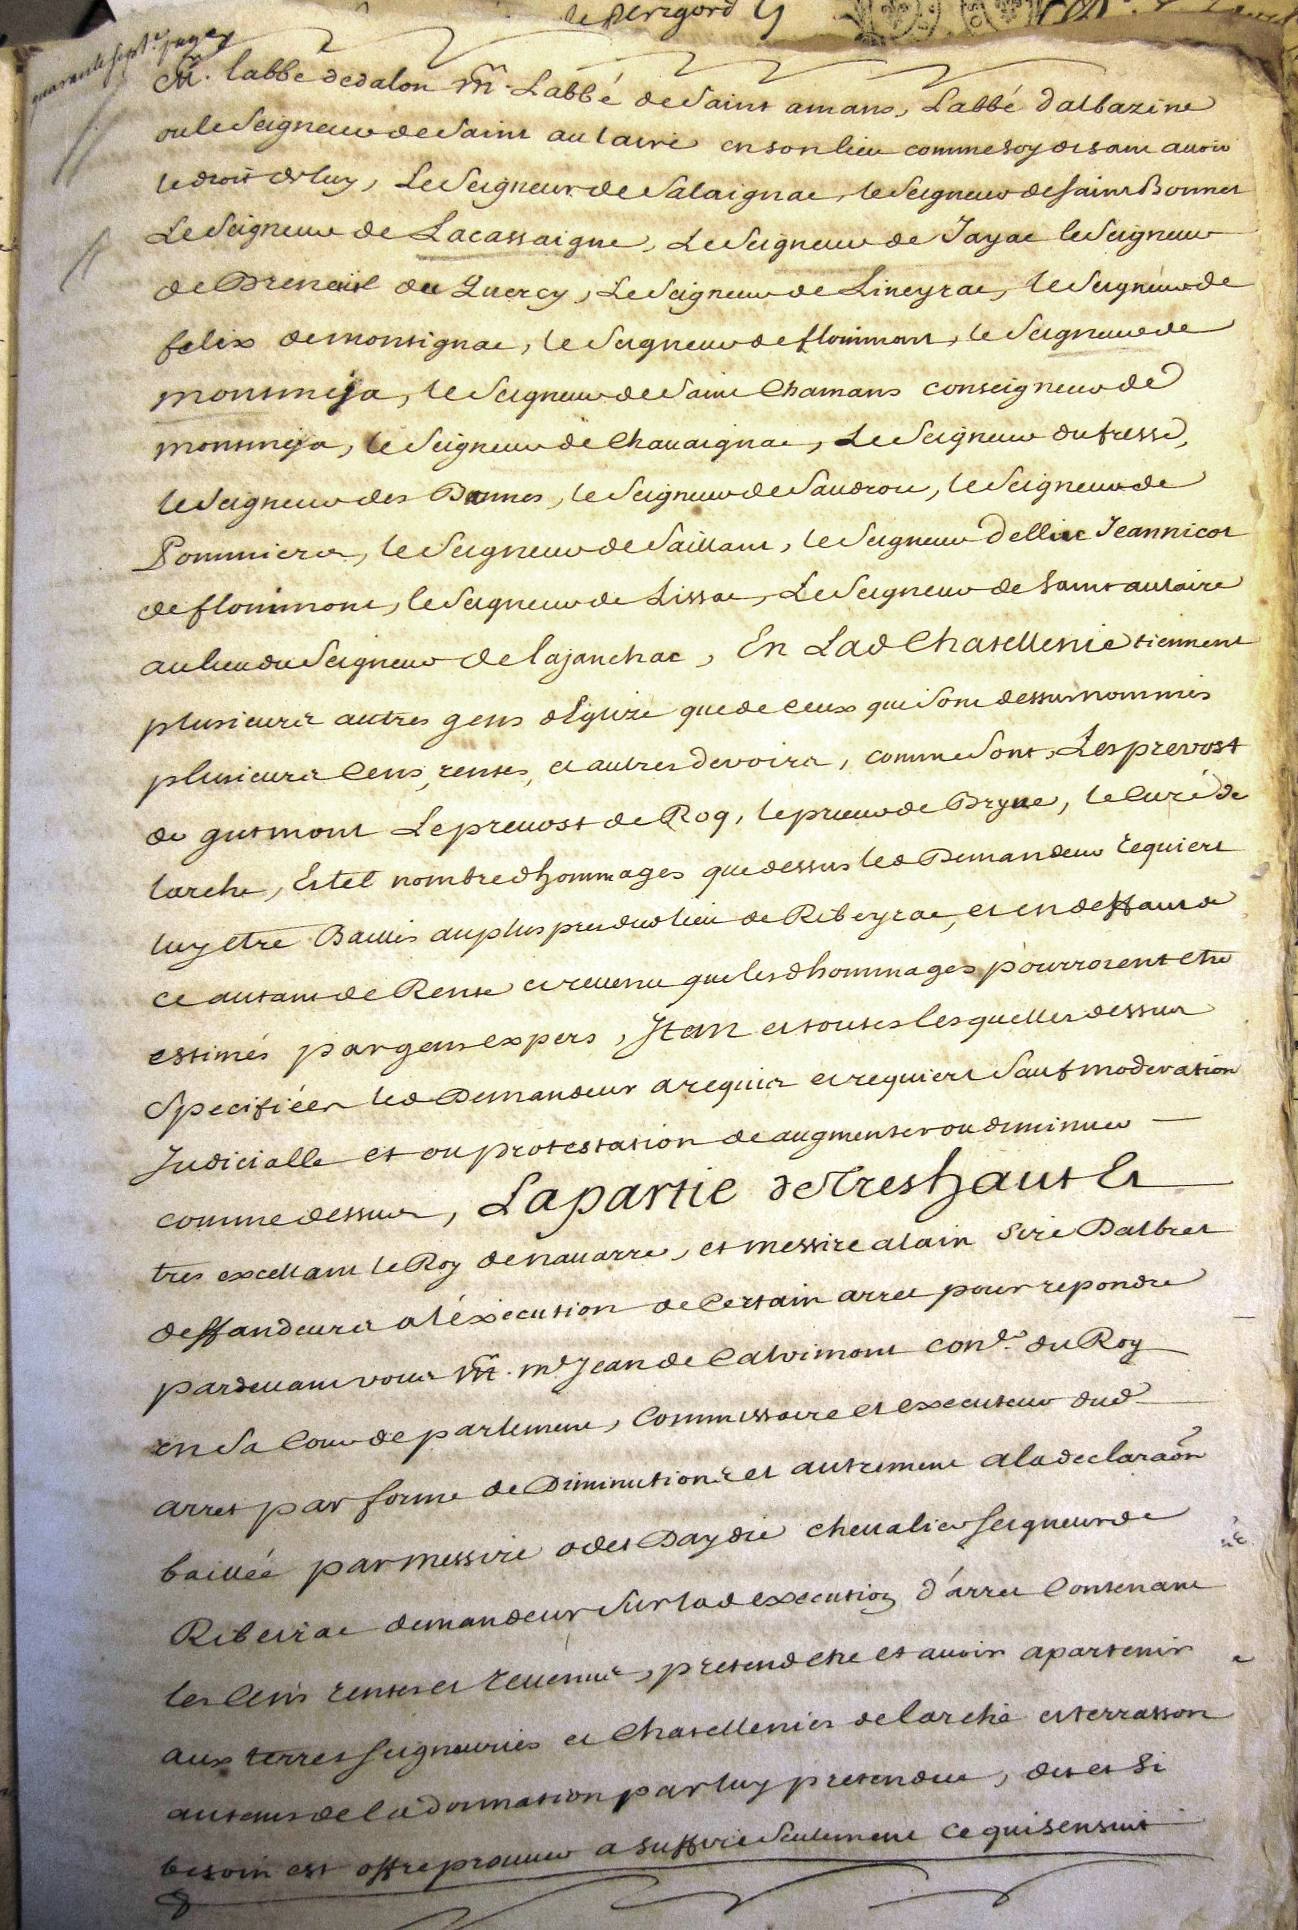 le perigord
quarante sept.e page
M. labbé dedalon M. Labbé de Saint amans, Labbé dalbazine
ou le Seigneur de Saint aulaire en son lieu comme soy disant avoir
le droit de luy, Le Seigneur de Salaignac, le Seigneur de saint Bonnet
Le Seigneur de Lacassaigne, Le Seigneur de Jayac le Seigneur
de du Quercy, Le Seigneur de Lineyrac, le Seigneur de
felix de montignac, le Seigneur de flommont, le Seigneur de
montmeja, le Seigneur de Saint Chamans conseigneur de
montmeja, le Seigneur de Chavaignac, Le Seigneur du fresse,
le Seigneur des le Seigneur de le Seigneur de
Pommiers, le Seigneur de Saillant, le Seigneur Jeannicot
de flommont, le Seigneur de Lissac, Le Seigneur de Saint aulaire
au lieu du Seigneur de lajanchac, En Lad Chatellenie tiennent
plusieurs autres gens deglize que de ceux qui sont dessus nommés
plusieurs Cens, rentes, et autres devoirs, comme sont Les prevost
de gutmont Le prevost de Roq, le prieur de le Curé de
larche, Et tel nombre dhommages que dessus led Demandeur requiert
luy etre Baillés au plus pres dud lieu de Ribeyrac, et en deffaut de
ce autant de Rente et revenu que lesd hommages pourroient etre
estimés par gens expers, Item et toutes lesquelles dessus
Specifiées led Demandeur a requis et requiert Sauf moderation
Judicialle et ou protestation de augmenter ou diminuer
comme dessus, La partie de Tres haut Et
tres excellant le Roy de navarre, et messire alain Sire Dalbret
deffandeurs a l'éxécution de Certain arret pour repondre
pardevant vous M. Me Jean de Calvimont con.er du Roy
en Sa Cour de parlement, Commissaire et executeur dud
arret par forme de Diminutions et autrement a la declaraon
baillée par messire odet Daydie chevalier seigneur de
Ribeirac demandeur Sur lad execution d'arret Contenant
les Cens rentes et revenus, pretend etre et avoir apartenir
aux terres seigneuries et Chatellenies de larche et terrasson
au tems de la donnation par luy pretendue, dit et Si
besoin est offre prouver a suffire Seulement ce qui sensuit